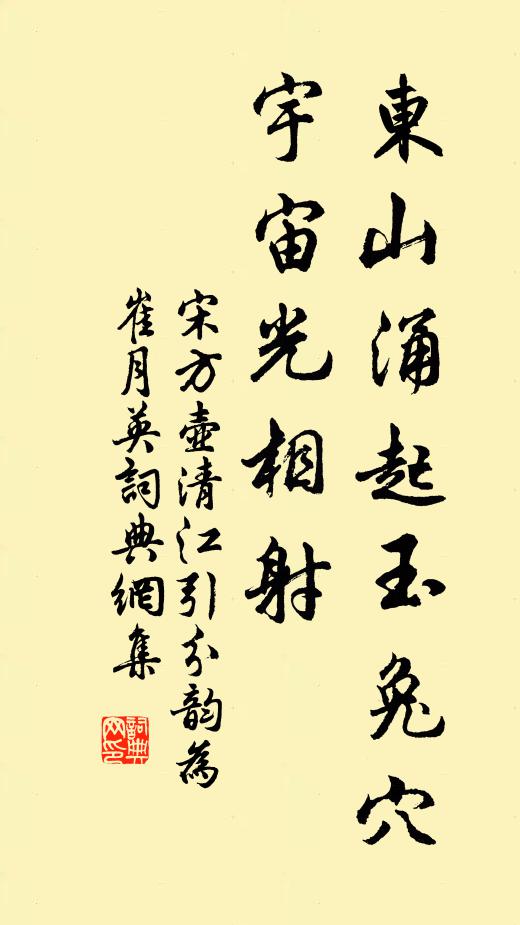 東山涌起玉兔穴
宇宙光相射
宋方壺清江引分韵為
崔月英詞典網集
詞典網印